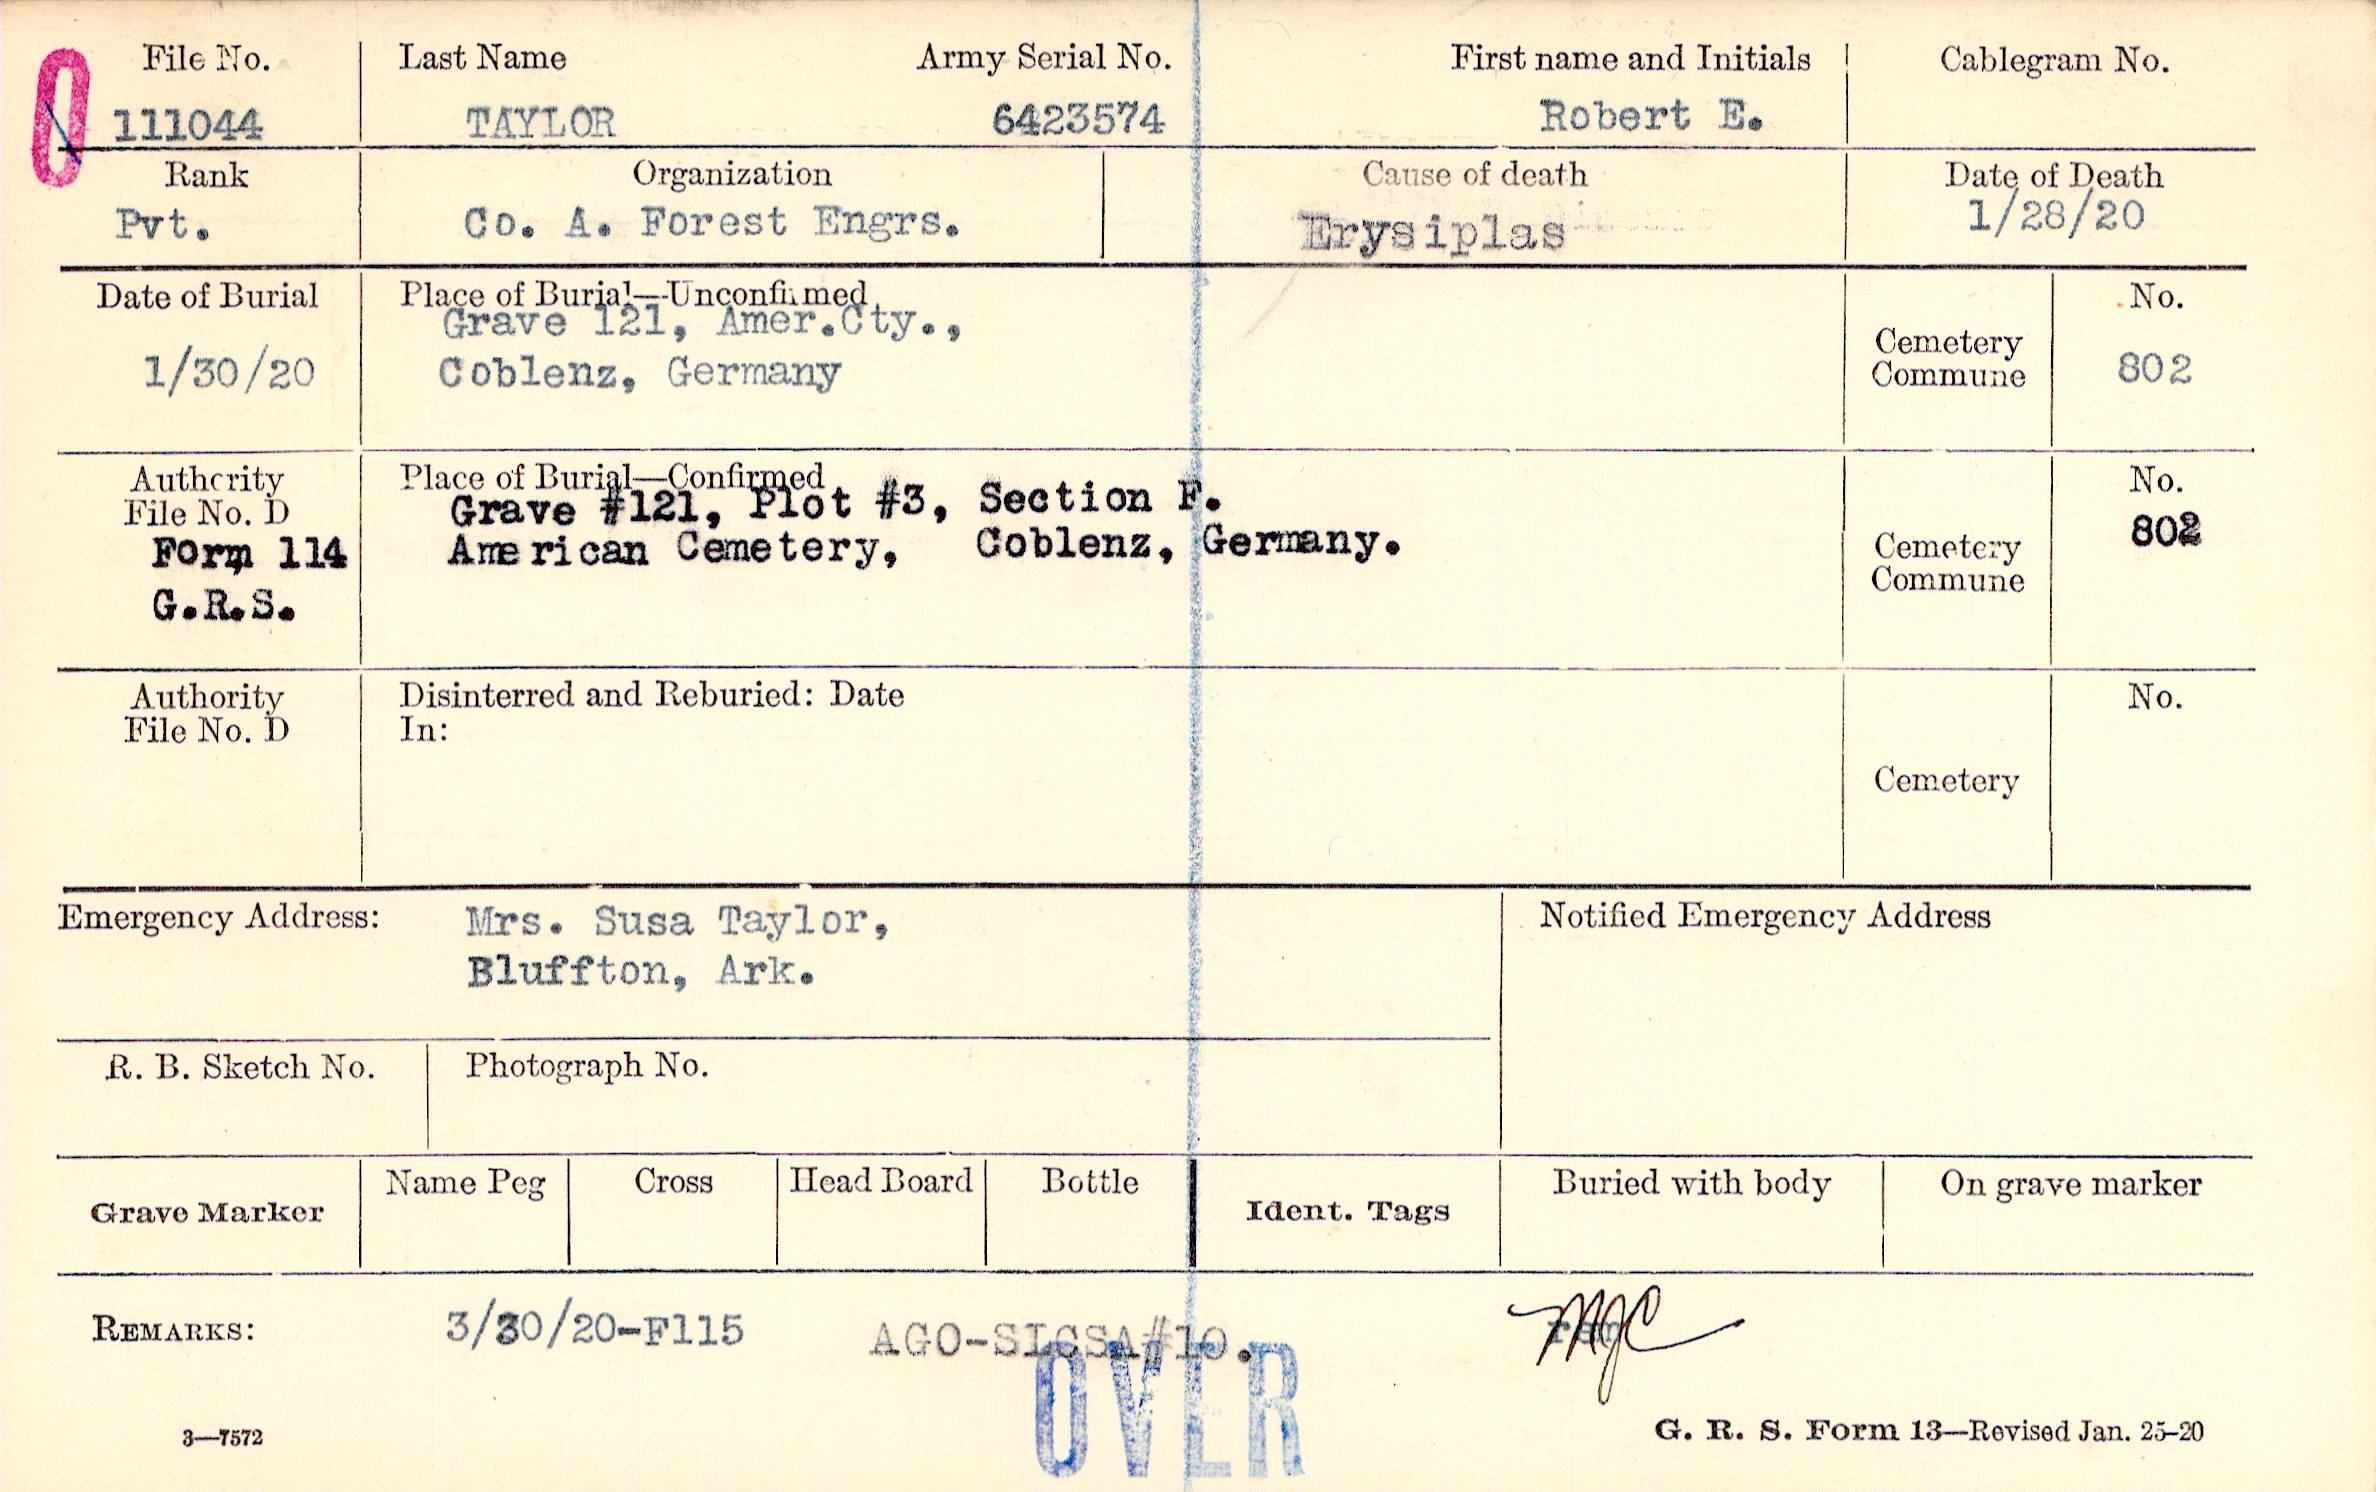 File No. Last Name Army Serial No. First name and Initials Cablegram No.
0 111044 TAYLOR 6423574 Robert E.
Rank Organization Cause of death Date of Death
Pvt. Co. A. Forest Engrs. Erysiplas 1/28/20
Date of Burial Place of Burial—Unconfirmed No.
Grave 121, Amer.Cty.,
1/30/20 Coblenz, Germany Cemetery Commune 802
Authority Place of Burial—Confirmed No.
File No. D Grave #121, Plot #3, Section F. 802
Form 114 American Cemetery, Coblenz, Germany. Cemetery
G.R.S. Commune
Authority Disinterred and Reburied: Date No.
File No. D In:
Cemetery
Emergency Address: Mrs. Susa Taylor, Notified Emergency Address
Bluffton, Ark.
R. B. Sketch No. Photograph No.
Grave Marker Name Peg Cross Head Board Bottle Ident. Tags Buried with body On grave marker
REMARKS: 3/30/20-F115 AGO-SLCSA#10. MJC
OVER
3—7572 G. R. S. Form 13—Revised Jan. 25-20